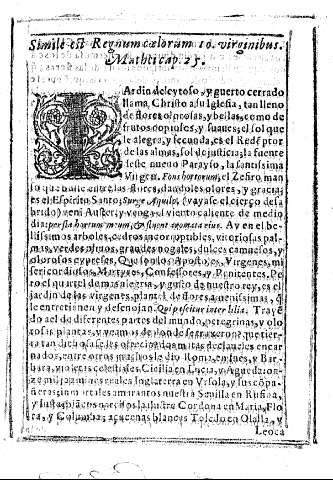 Simile est Regnum cælorum 10. virginibus.
Matthei cap. 25.
IArdin deleytoso, y guerto cerrado
llama, Christo a su Iglesia, tan lleno
de flores olorosas, y bellas, como de
frutos copiosos, y suaues; el sol que
le alegra, y fecunda, es el Redẽptor
de las almas, sol de justicia; la fuente
deste nueuo Parayso, la santissima
Virgen. Fons hortorum; el Zefiro man
so que bulle entre las flores, dandoles olores, y gracia,
es el Espiritu Santo; Surge Aquilo, (vayase el cierço desa
brido) veni Auster; y venga el viento caliente de medio
dia: perfla hortum meum, & fluent aromata eius. Ay en el be-
llissimos arboles, cedros incorruptibles, vitoriosas pal-
mas, verdes oliuos, grandes nogales, dulces camuesos, y
olorosos cypreses, Que son los Apostoles, Virgenes, mi
sericordiosos, Martyres, Confessores, y Penitentes. Pe
ro el quartel de mas alegria, y gusto de nuestro rey, es el
jardin de las virgenes, plantel de flores amenissimas, q̃
le entretienen y desenojan. Qui pascitur inter lilia. Traye
do a el de diferentes partes del mundo, peregrinas, y olo
rosas plantas, y
tan dichosa
nados, entre otros muchos le dio Roma, en Ines, y Bar-
bara, violetas celestiales, Cicilia en Lucia, y Agueda
ze mil jazmines reales Inglaterra en Vrsola, y sus cõpa-
ñeras, amirantos nuestra Seuilla en Rufina,
y Iusta, la ilustre Cordoua en Maria, Flo
ra, y Columba; açucenas blancas Toledo en Olalla, y
Leoca